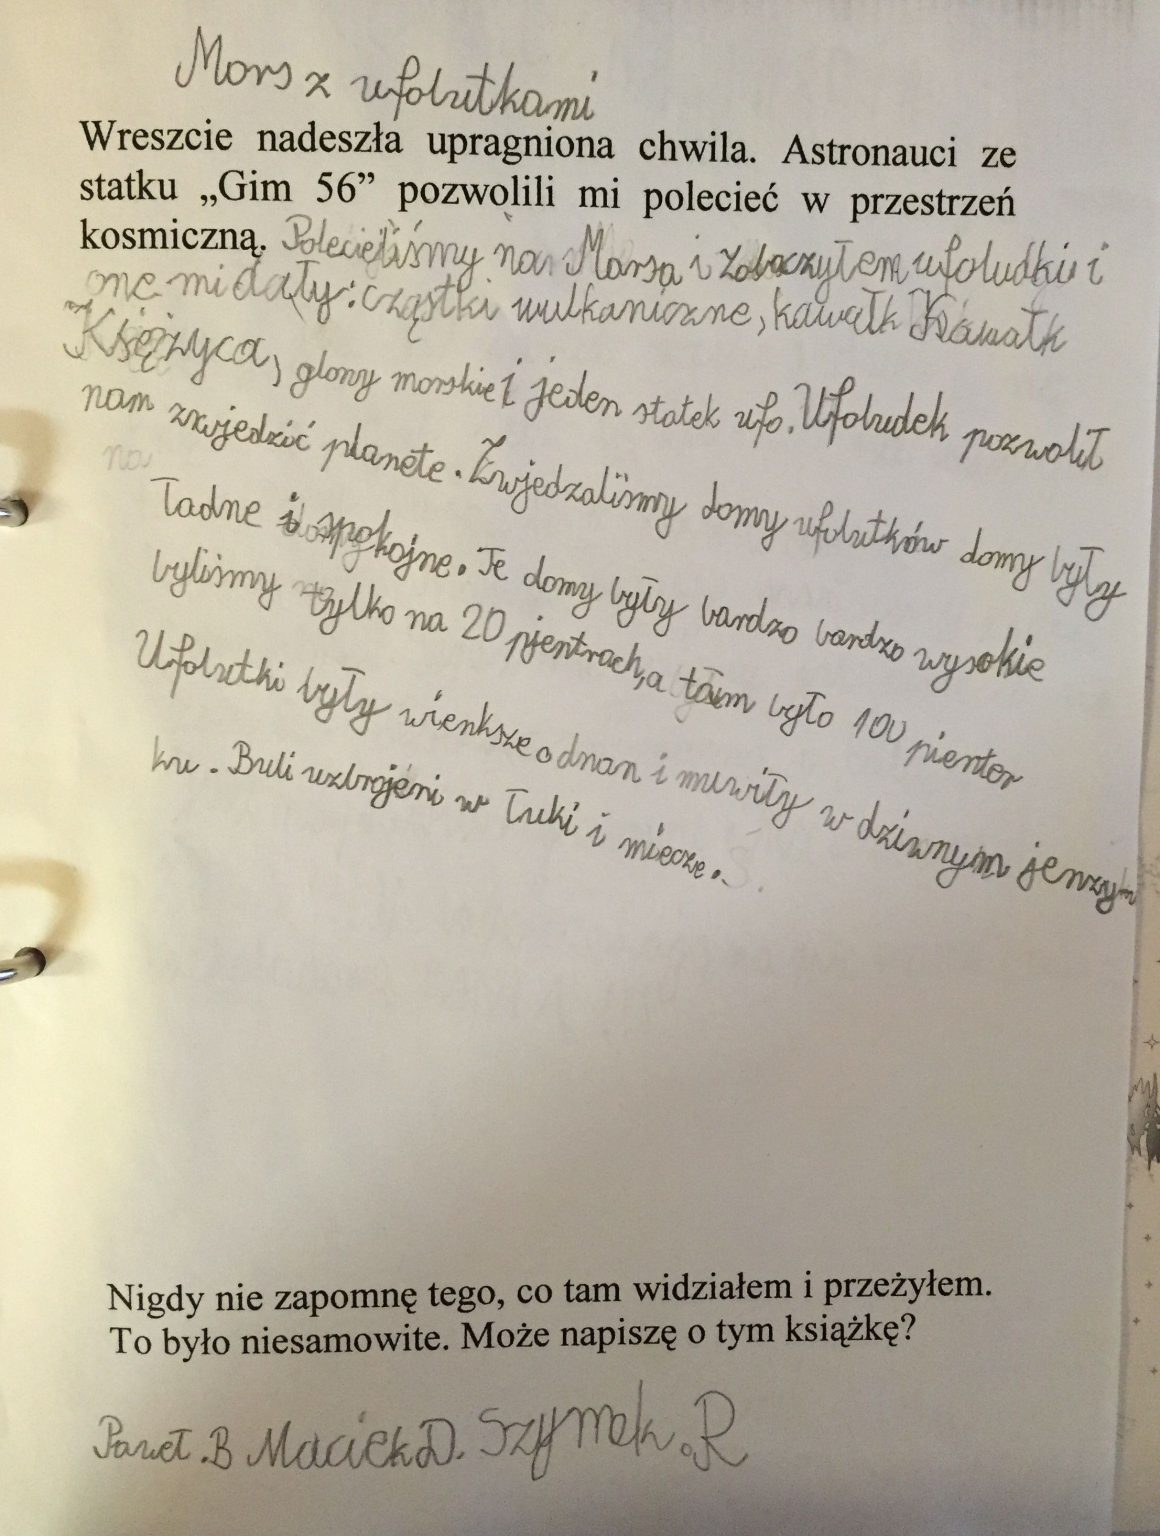 Mars z ufolutkami
Wreszcie nadeszła upragniona chwila. Astronauci ze
statku „Gim 56” pozwolili mi polecieć w przestrzeń
kosmiczną. Polecieliśmy na Marsa i zobaczyłem ufoludki i
one mi dały: cząstki wulkaniczne, kawałk Kawałk
Księżyca, glony morskie i jeden statek ufo. Ufoludek pozwolił
nam zwjedzić planete. Zwjedzaliśmy domy ufolutków domy były
ładne i spokojne. Te domy były bardzo bardzo wysokie
byliśmy tylko na 20 pjentrach, a tam było 100 pienter
Ufolutki były wienksze odnan i muwiły w dziwnym jenzy
ku. Buli uzbrojeni w łuki i miecze.
Nigdy nie zapomnę tego, co tam widziałem i przeżyłem.
To było niesamowite. Może napiszę o tym książkę?
Paweł.B Maciek D. Szymek.R